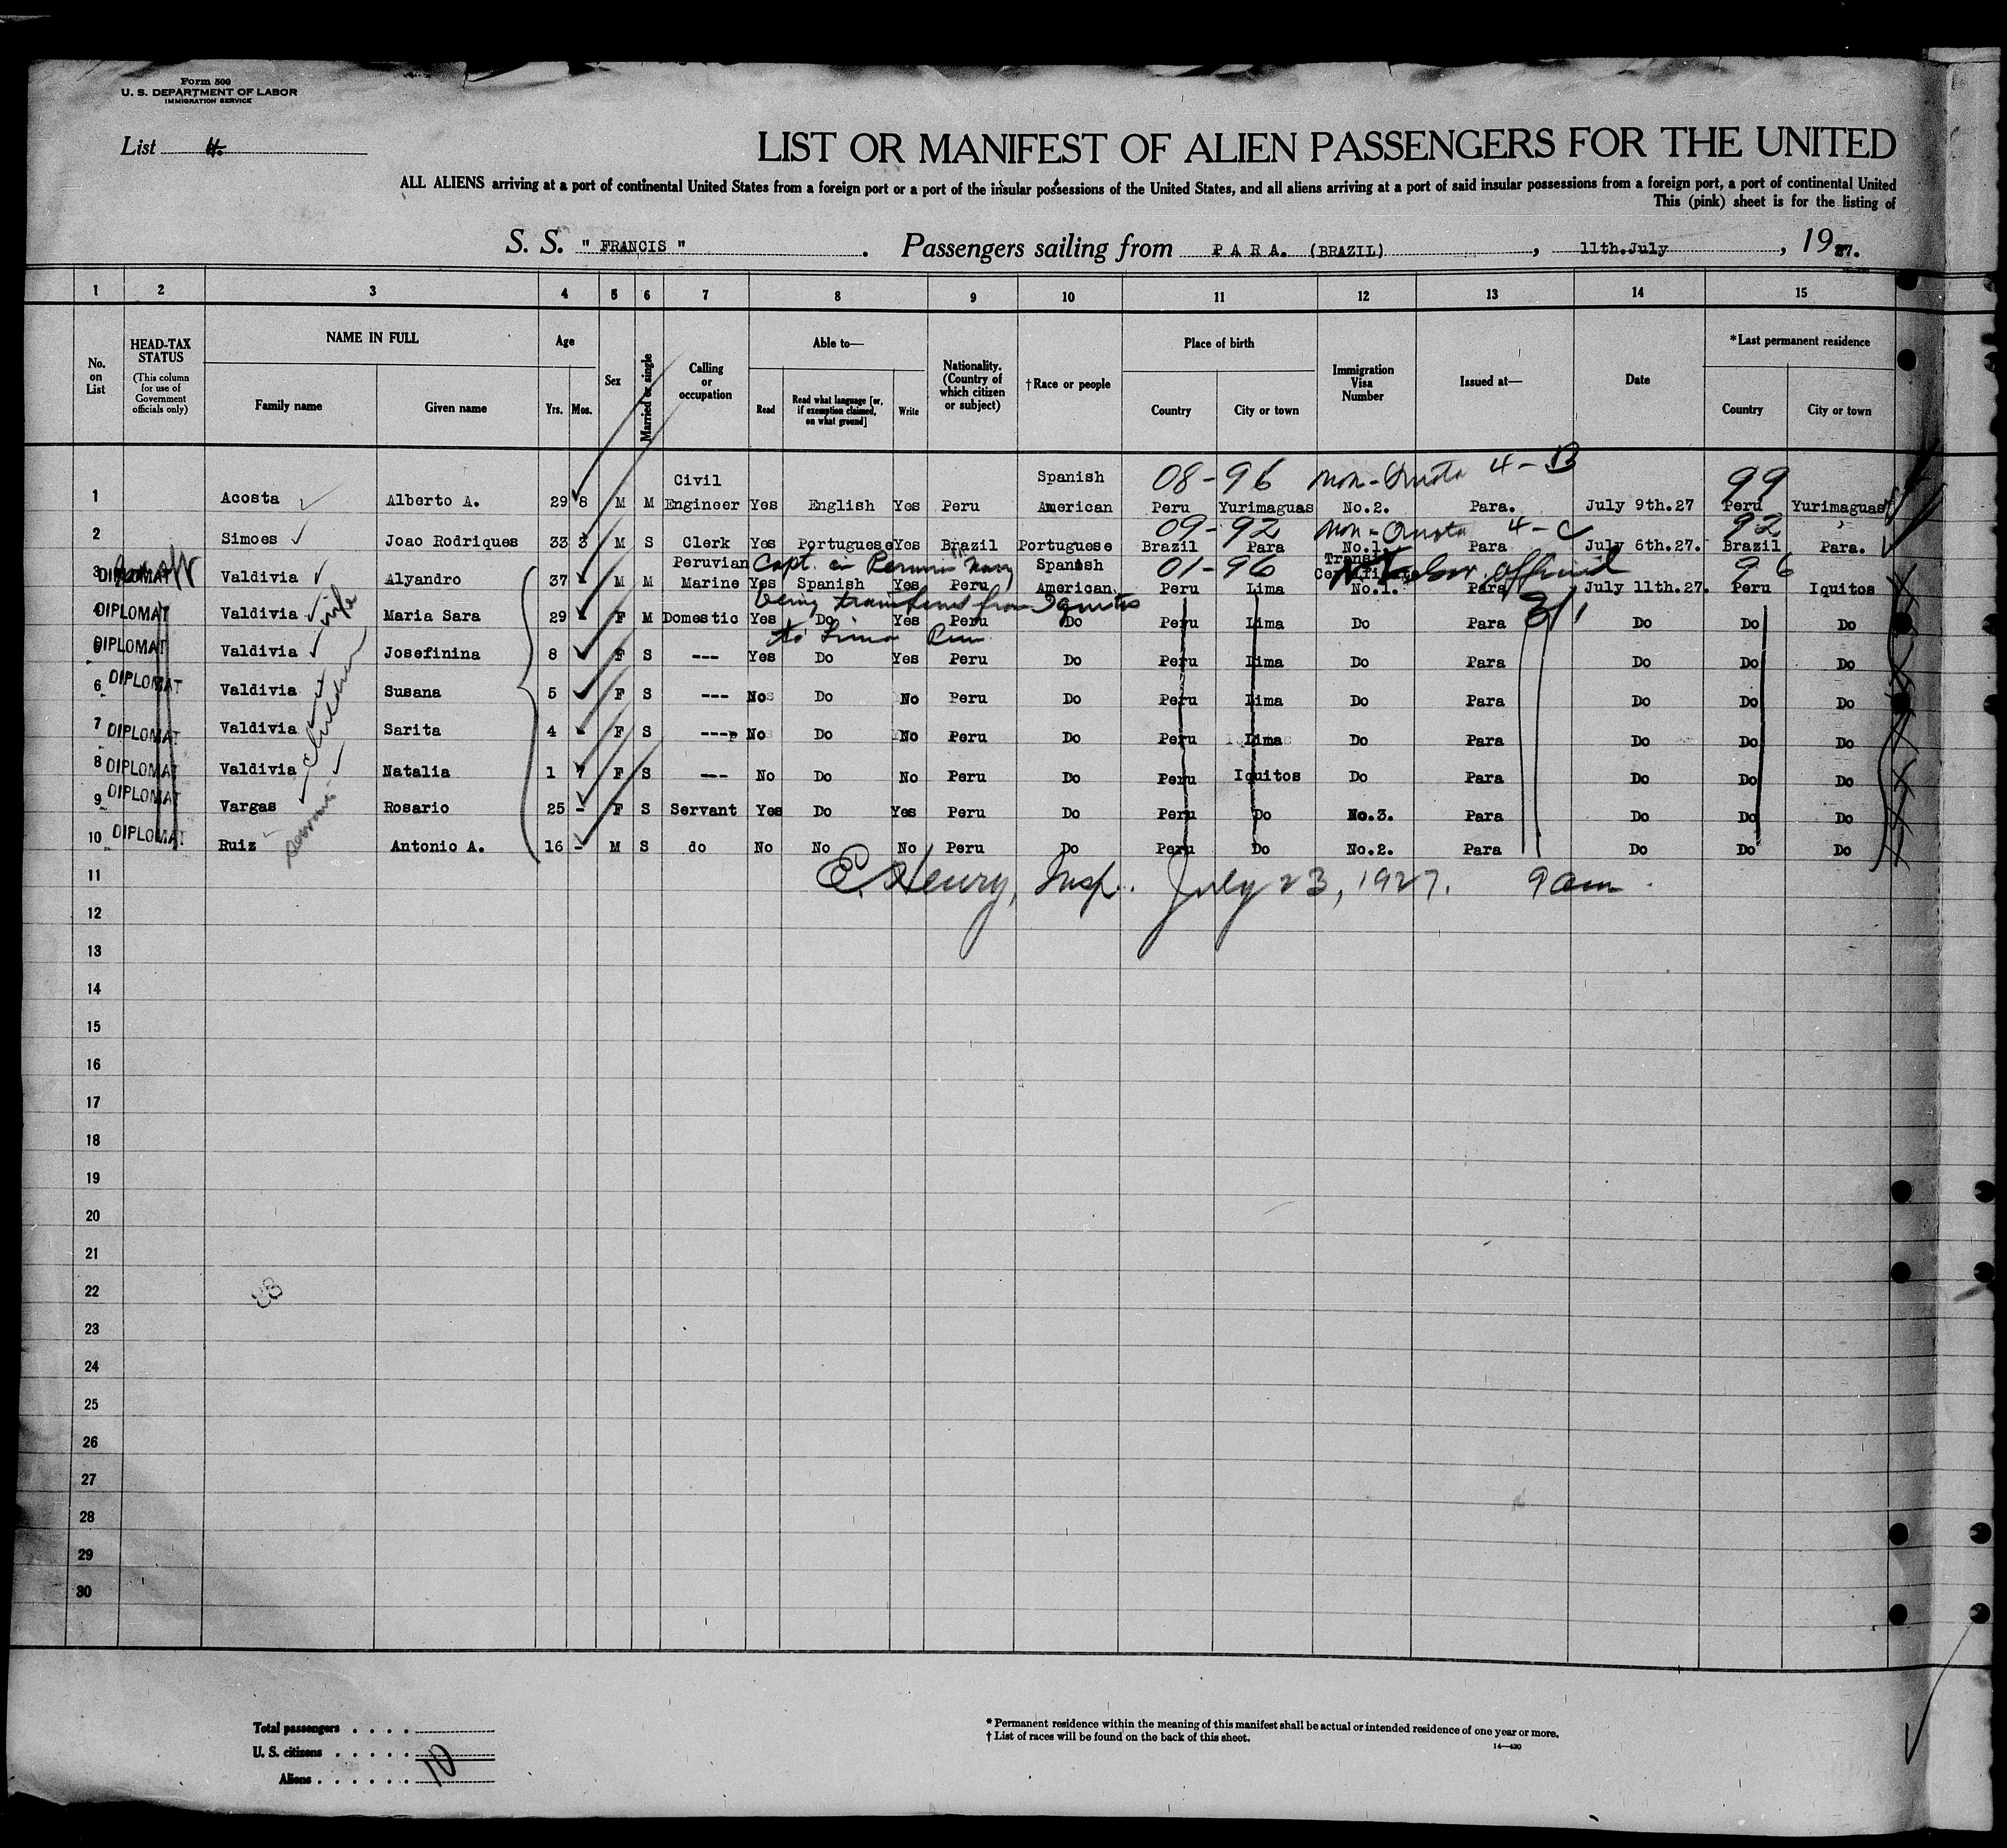 Form 500
U. S. DEPARTMENT OF LABOR
IMMIGRATION SERVICE
List 4.
LIST OR MANIFEST OF ALIEN PASSENGERS FOR THE UNITED
ALL ALIENS arriving at a port of continental United States from a foreign port or a port of the insular possessions of the United States, and all aliens arriving at a port of said insular possessions from a foreign port, a port of continental United
This (pink) sheet is for the listing of
S. S. " FRANCIS " . Passengers sailing from P A R A. (BRAZIL) , 11th.July , 19 27.
1 2 3 4 5 6 7 8 9 10 11 12 13 14 15
No. on List
HEAD-TAX STATUS
(This column for use of Government officials only)
NAME IN FULL
Family name Given name
Age
Yrs. Mos.
Sex
Married or single
Calling or occupation
Able to—
Read Read what language [or, if exemption claimed, on what ground] Write
Nationality. (Country of which citizen or subject)
†Race or people
Place of birth
Country City or town
Immigration Visa Number
Issued at—
Date
*Last permanent residence
Country City or town
08-96 Non-Quota 4-B 99
1 Acosta Alberto A. 29 8 M M Civil Engineer Yes English Yes Peru Spanish American Peru Yurimaguas No.2. Para. July 9th.27 Peru Yurimaguas
09-92 Non-Quota 4-C 92
2 Simoes Joao Rodriques 33 3 M S Clerk Yes Portuguese Yes Brazil Portuguese Brazil Para No.1. Para July 6th.27. Brazil Para.
Capt. in Peruvian Navy 01-96 Gov. official 96
3 DIPLOMAT Valdivia Alyandro 37 M M Peruvian Marine Yes Spanish Yes Peru Spanish American Peru Lima Transit Certificate No.1. Para July 11th.27. Peru Iquitos
being transferred from Iquitos
4 DIPLOMAT Valdivia wife Maria Sara 29 F M Domestic Yes Do Yes Peru Do Peru Lima Do Para Do Do Do
to Lima Peru
5 DIPLOMAT Valdivia Josefinina 8 F S --- Yes Do Yes Peru Do Peru Lima Do Para Do Do Do
6 DIPLOMAT Valdivia Susana 5 F S --- No Do No Peru Do Peru Lima Do Para Do Do Do
children
7 DIPLOMAT Valdivia Sarita 4 F S --- No Do No Peru Do Peru Lima Do Para Do Do Do
8 DIPLOMAT Valdivia Natalia 1 7 F S --- No Do No Peru Do Peru Iquitos Do Para Do Do Do
9 DIPLOMAT Vargas Rosario 25 - F S Servant Yes Do Yes Peru Do Peru Do No.3. Para Do Do Do
10 DIPLOMAT Ruiz Antonio A. 16 - M S do No No No Peru Do Peru Do No.2. Para Do Do Do
11 E. Henry, Insp. July 23, 1927. 9 am
12
13
14
15
16
17
18
19
20
21
22
23
24
25
26
27
28
29
30
Total passengers . . . .
U. S. citizens . . . . .
Aliens . . . . . . 10
* Permanent residence within the meaning of this manifest shall be actual or intended residence of one year or more.
† List of races will be found on the back of this sheet.
14—430